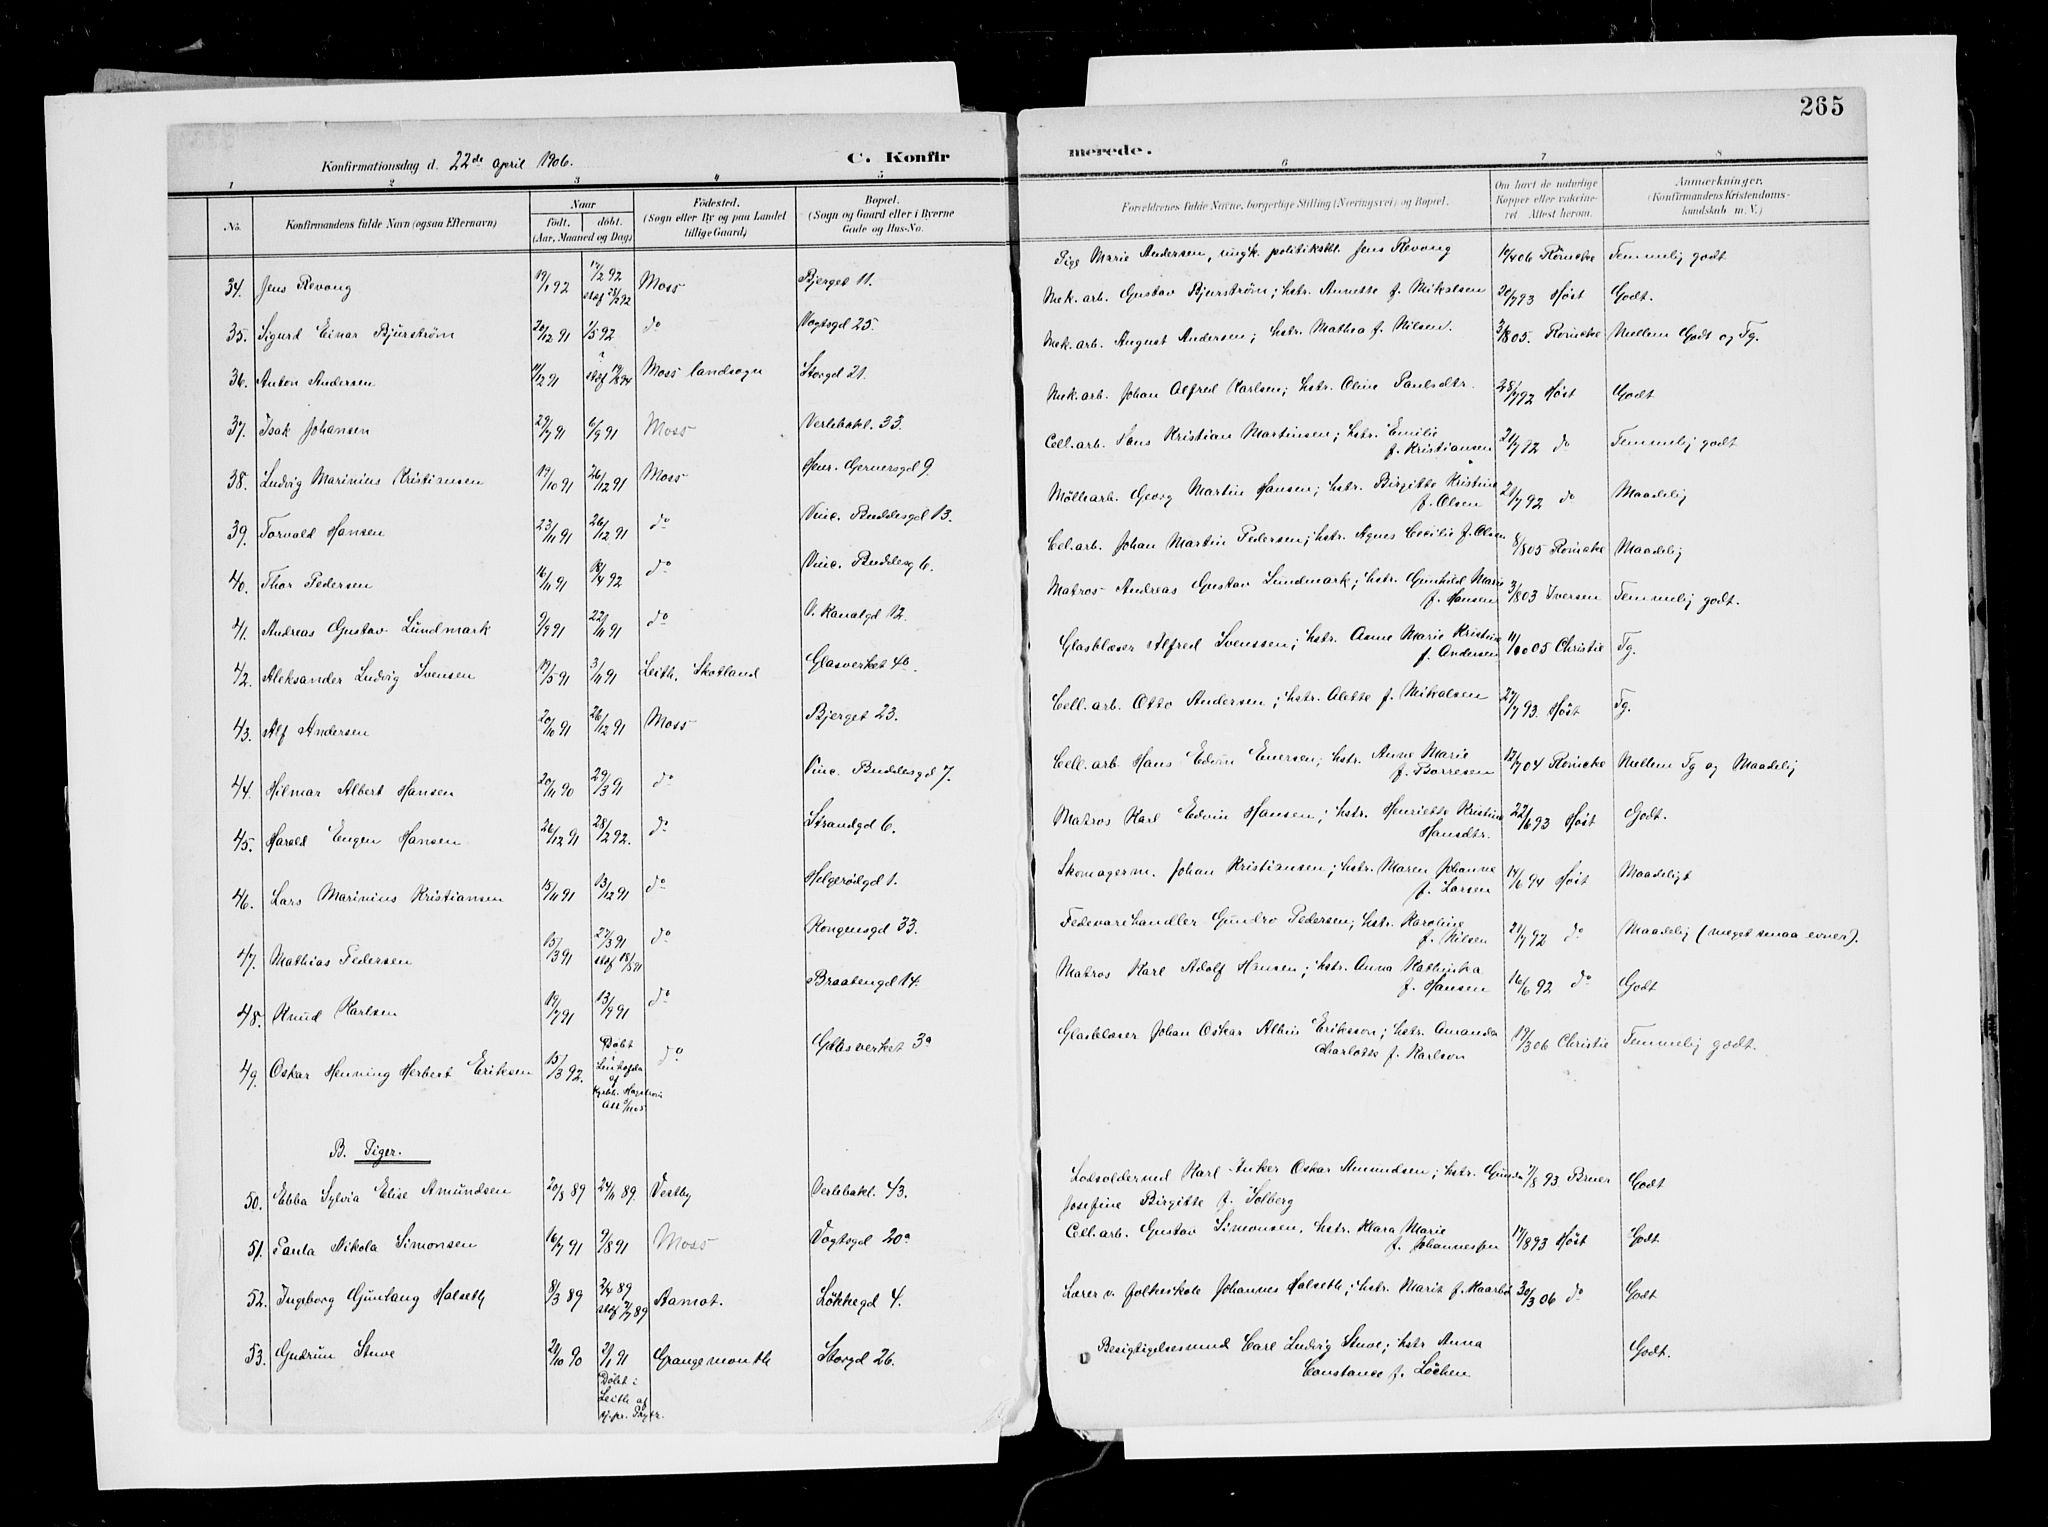 265
Konfirmationsdag d. 22de april 1906.
C. Konfirmerede.
1 2 3 4 5 6 7 8
No.
Konfirmandens fulde Navn (ogsaa Efternavn)
Naar
født. døbt.
(Aar, Maaned og Dag)
Fødested.
(Sogn eller By og paa Landet
tillige Gaard)
Bopæl.
(Sogn og Gaard eller i Byerne
Gade og Hus-No.
Forældrenes fulde Navne, borgerlige Stilling (Næringsvei) og Bopæl.
Om havt de naturlige
Kopper eller vaccine-
ret. Attest herom.
Anmærkninger.
(Konfirmandens Kristendoms-
kundskab m. V.)
34. Jens Revong 19/1 92 17/2 92 Moss Bjerget 11. Pige Marie Andersen, ungk. politikstbl. Jens Revong 10/4 06 Römcke Temmelig godt
stadf 28/2 92
35. Sigurd Einar Bjurström 20/12 91 1/5 92 do Vogtsgd 25. Mek. arb. Gustav Bjurström; hstr. Annette f. Mikalsen 20/7 93 Høst Godt.
36. Anton Andersen 11/12 91 Moss landsogn Storgd 21. Mek. arb. August Andersen; hstr. Mathea f. Nilsen. 3/8 05. Römcke Mellem Godt og Tg.
37. Isak Johansen 29/7 91 6/9 91 Moss Verlebakl. 33. Mek. arb. Johan Alfred Karlsen; hstr. Oline Paulsdtr. 28/7 92 Høst Godt
38. Ludvig Marinius Kristiansen 19/10 91 26/12 91 Moss Henr. Gernersgd 9. Cell. arb. Hans Kristian Martinsen; hstr. Emilie 21/7 92 do Temmelig godt
f. Kristiansen
39. Torvald Hansen 23/11 91 26/12 91 do Vinc. Buddesgd 13. Møllearb. Georg Martin Hansen; hstr. Birgitte Kristine 21/7 92 do Maadelig
f. Olsen
40. Thor Pedersen 16/11 91 18/4 92 do Vinc. Buddesg 6. Cel. arb. Johan Martin Pedersen; hstr. Agnes Cecilie f. Olsen 8/8 05 Römcke Maadelig
41. Andreas Gustav Lundmark 9/9 91 22/11 91 do O. Kanalgd 12. Matros Andreas Gustav Lundmark; hstr. Gunhild Marie 3/8 03 Iversen Temmelig godt.
f. Hansen
42. Aleksander Ludvig Svensen 17/5 91 3/11 91 Leith. Skotland Glasverket 4b. Glasblæser Alfred Svenssen; hstr. Anne Marie Kristine 11/10 05 Christie Tg.
f. Andersen
43. Alf Andersen 20/10 91 26/12 91 Moss Bjerget 23. Cell. arb. Otto Andersen; hstr. Alette f. Mikalsen 27/7 93. Høst Tg.
44. Hilmar Albert Hansen 20/11 90 29/3 91 do Vinc. Buddesgd 7. Cell. arb. Hans Edvin Enersen; hstr. Anne Marie 12/7 04 Römcke Mellem Tg og Maadelig
f. Børresen
45. Harald Eugen Hansen 26/12 91 28/2 92. do Strandgd 6. Matros Karl Edvin Hansen; hstr. Henriette Kristine 22/6 93 Høst Godt.
Hansdtr.
46. Lars Marinius Kristiansen 15/11 91 13/12 91 do Helgerödgd 1. Skomagerm. Johan Kristiansen; hstr. Maren Johanne 14/6 94 Høst Maadeligt
f. Larsen
47. Mathias Pedersen 15/1 391 27/3 91 do Kongensgd 33. Fedevarehandler Gundro Pedersen; hstr. Karoline 21/7 92 do Maadelig (meget smaa evner).
stadf 18/5 91 f. Nilsen
48. Knud Karlsen 19/7 91 13/9 91 do Braatengd 14. Matros Karl Adolf Hansen; hstr. Anna Kathinka 16/6 92 do Godt
f. Hansen
49. Oskar Henning Herbert Eriksen 15/3 92. Døbt do Glasverket 3a Glasblæser Johan Oskar Albin Eriksson; hstr. Amanda 19/3 06 Christie Temmelig godt.
af Charlotte f. Karlson
B. Piger.
50. Ebba Sylvia Elise Amundsen 20/8 89 24/11 89 Vestby Verlebakl. 43. Lodsoldermd Karl Anker Oskar Amundsen; hstr. Gunda 7/8 93 Bruer Godt
Josefine Birgitte f. Solberg
51. Paula Nikola Simonsen 16/7 91 9/8 91 Moss Vogtsgd 20a Cell. arb. Gustav Simonsen, hstr. Klara Marie 17/8 93 Høst Godt.
f. Johannessen
52. Ingeborg Gunlaug Halseth 8/3 89 2/4 89 Aamot. Løkkegd 4. Lærer v. folkeskole Johannes Halseth; hstr. Marit f. Maarbø 30/3 06 do Godt
53. Gudrun Stuve 21/10 90 2/1 91 Grangemouth Storgd 26. Besigtigelsesmnd Carl Ludvig Stuve; hstr Anna Godt.
Døbt i Constance f. Løchen
Leith af